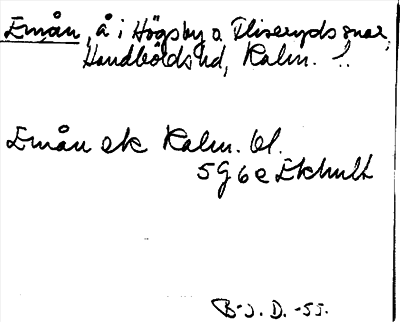 Emån, å i Högsby o. Fliseryds snar,
Handbörds hd, Kalm. l.
Emån ek Kalm. bl.
5G6e Ekhult
B-J. D. -55.